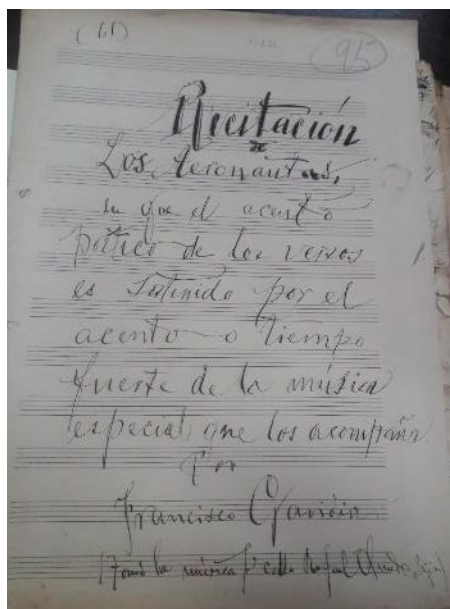 (61)
95
Recitación
de
Los Aeronautas,
en que el acento
pático de los versos
es sostenido por el
acento o tiempo
fuerte de la música
especial que los acompaña
Por
Francisco Gavidia
(Tomó la música Rafael